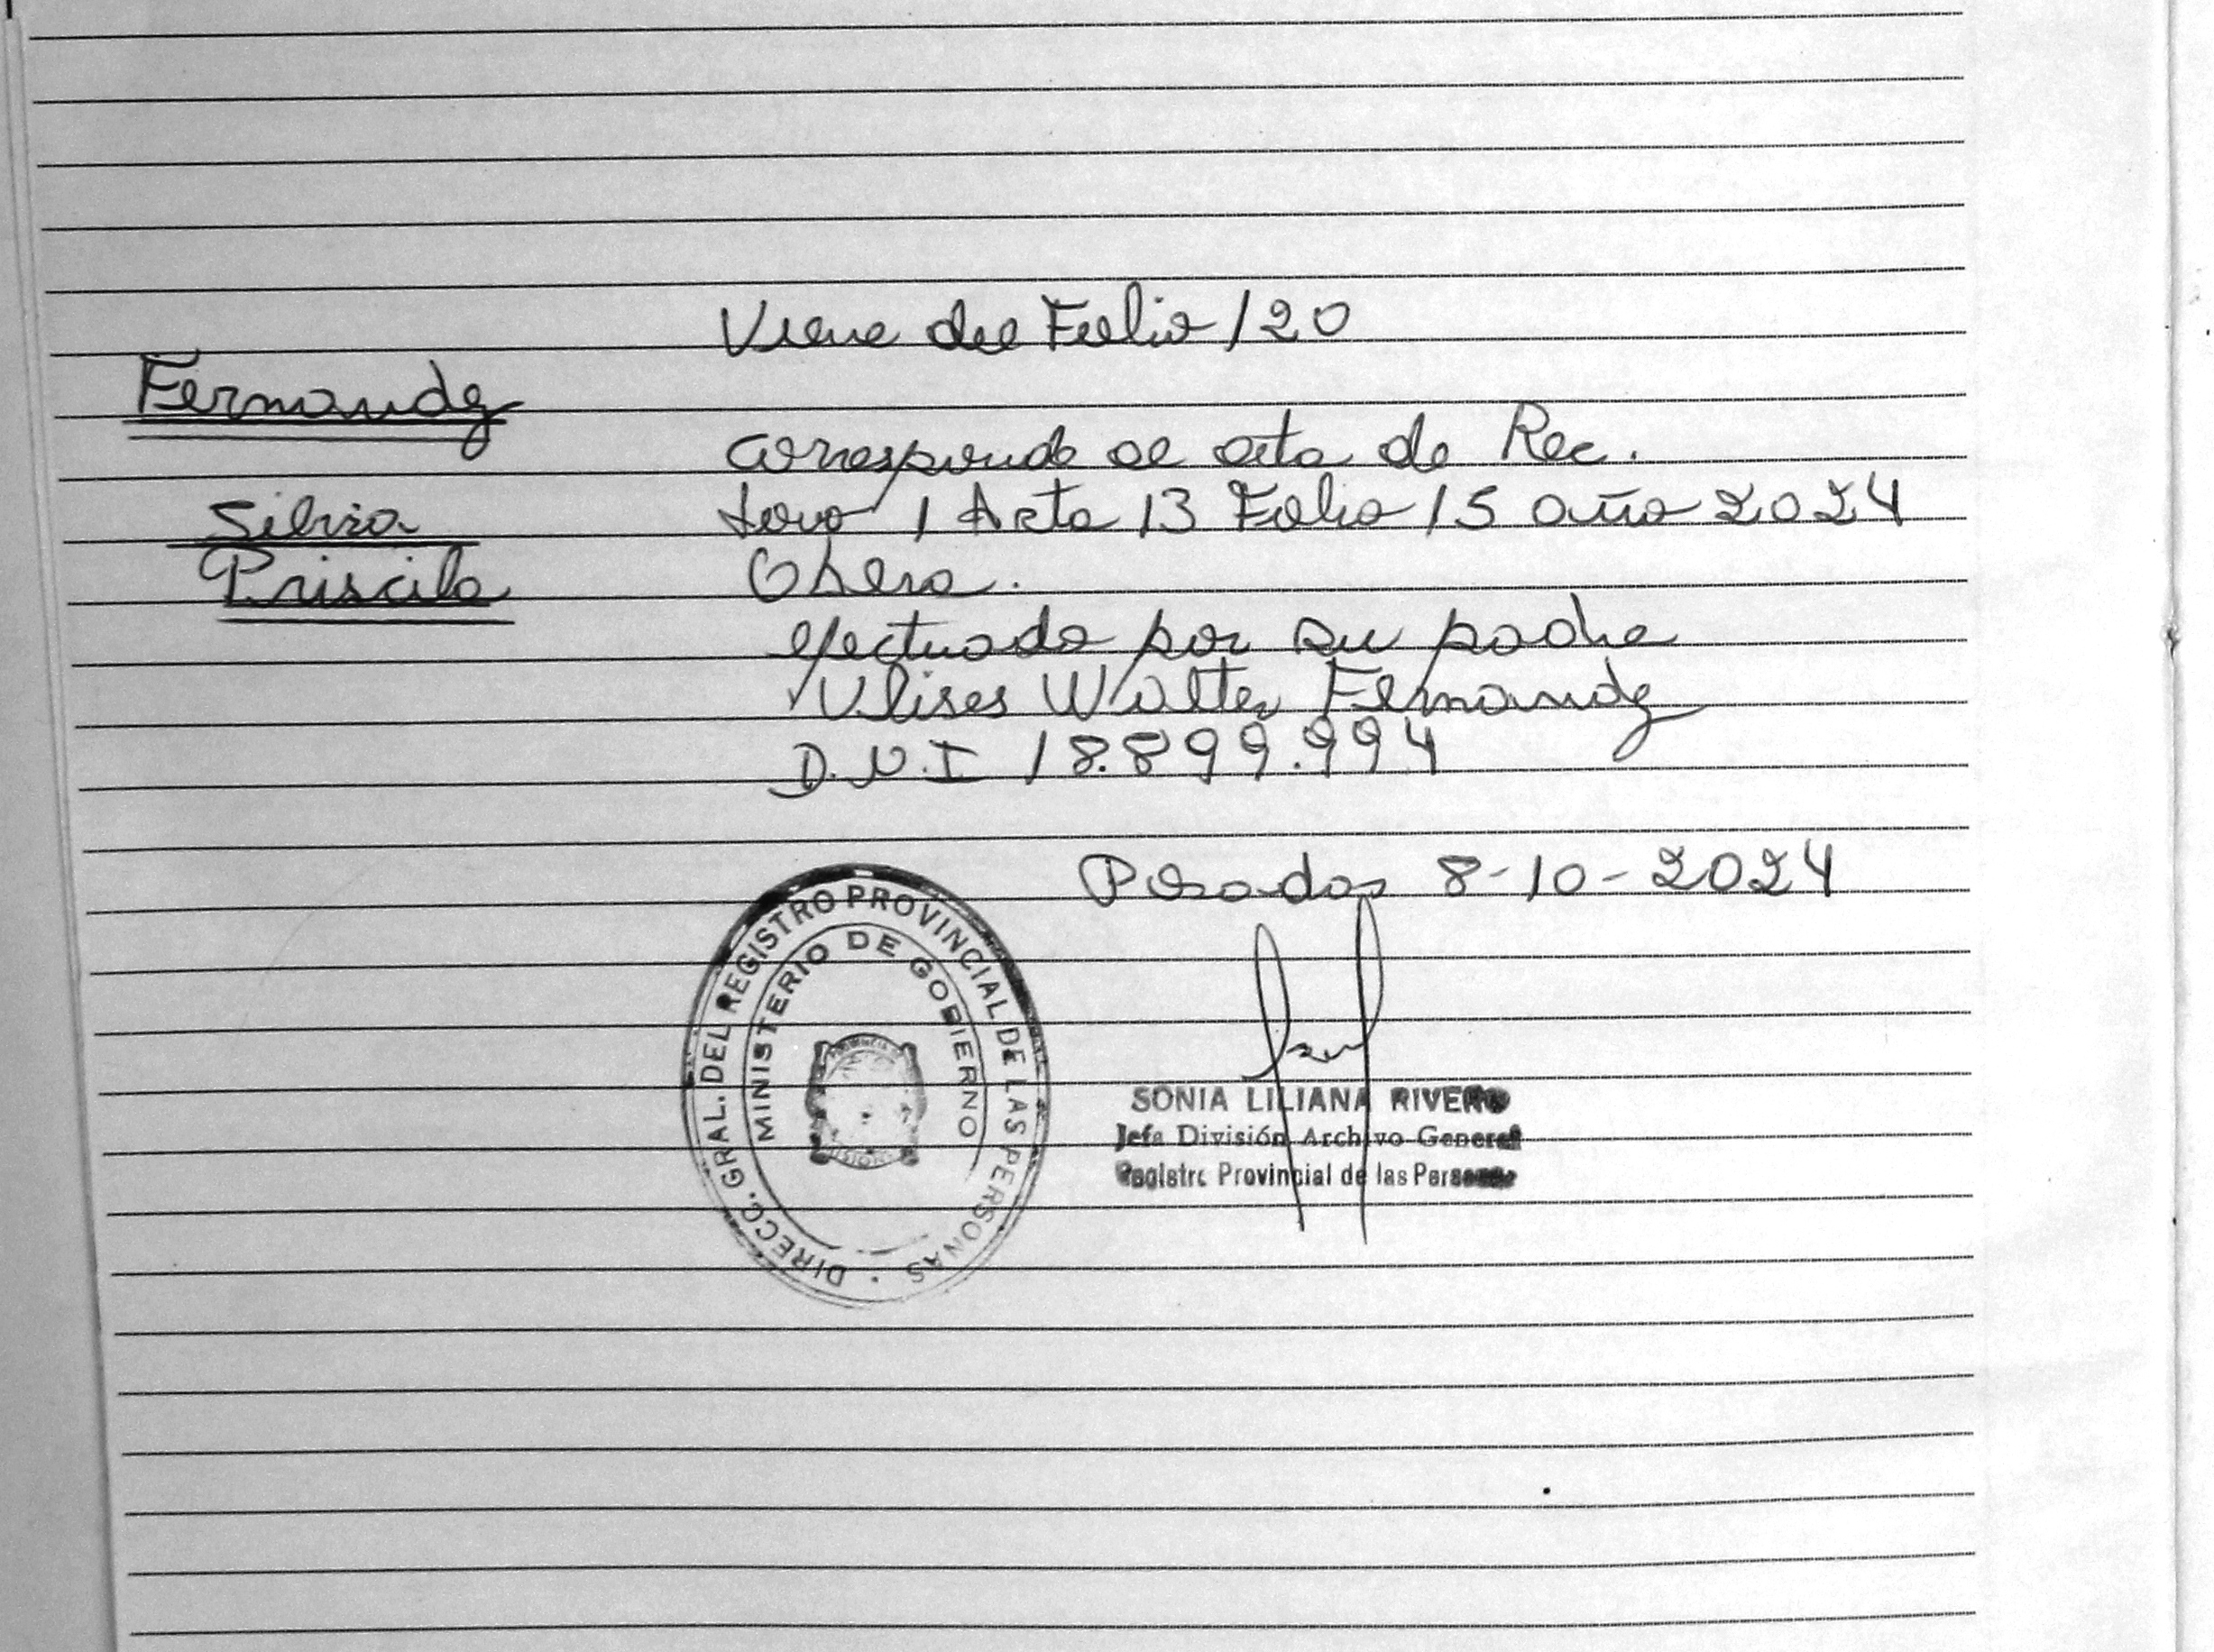 Viene del Folio 120
Fernandez
corresponde al acta de Rec.
Silvia
tomo 1 Acta 13 Folio 15 año 2024
Priscila
Obera.
efectuado por su padre
Ulises Walter Fernandez
D.N.I 18.899.994
Posadas 8-10-2024
DIRECC. GRAL. DEL REGISTRO PROVINCIAL DE LAS PERSONAS
MINISTERIO DE GOBIERNO
SONIA LILIANA RIVERO
Jefa División Archivo General
Registro Provincial de las Personas